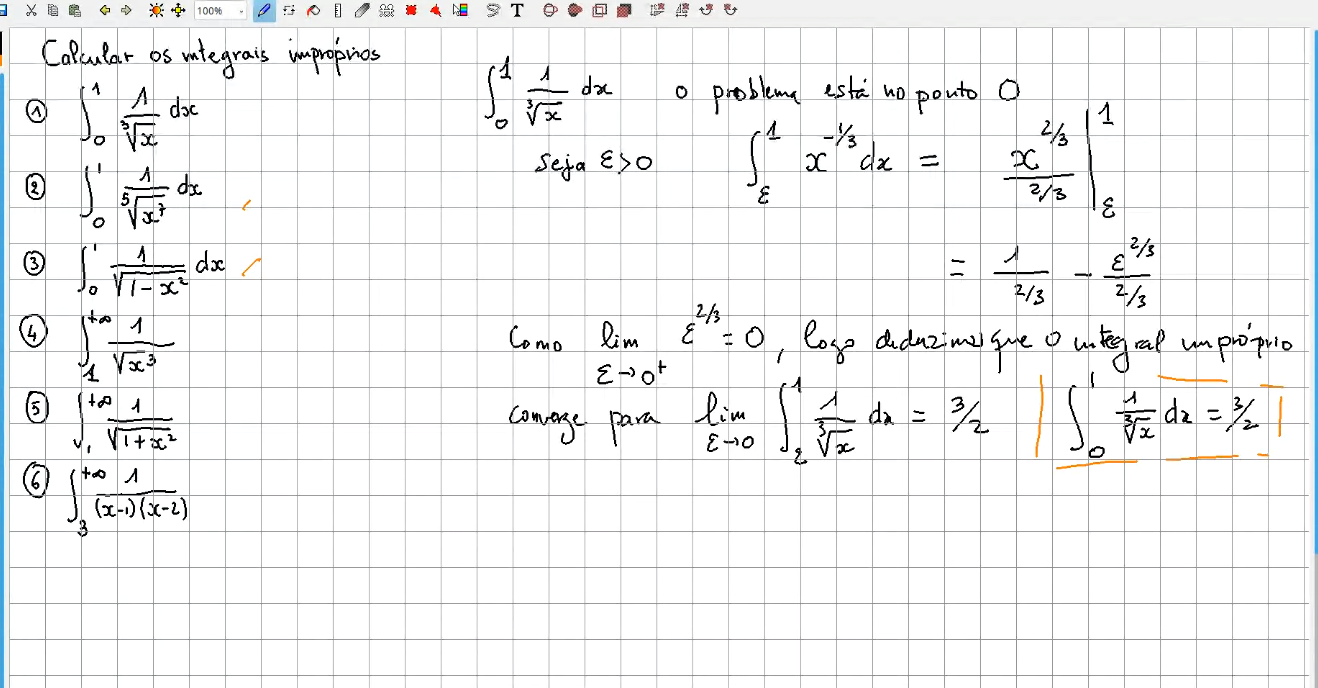 100%
Calcular os integrais impróprios
① ∫₀¹ 1/∛x dx
② ∫₀¹ 1/⁵√x⁷ dx
③ ∫₀¹ 1/√(1-x²) dx
④ ∫₁^{+∞} 1/√x³
⑤ ∫₁^{+∞} 1/√(1+x²)
⑥ ∫₃^{+∞} 1/((x-1)(x-2))
∫₀¹ 1/∛x dx o problema está no ponto 0
Seja ε>0 ∫_ε^1 x^{-1/3} dx = x^{2/3}/(2/3) |_ε^1
= 1/(2/3) - ε^{2/3}/(2/3)
Como lim_{ε→0⁺} ε^{2/3} = 0, logo deduzimos que o integral impróprio
converge para lim_{ε→0} ∫_ε^1 1/∛x dx = 3/2 ∫₀¹ 1/∛x dx = 3/2